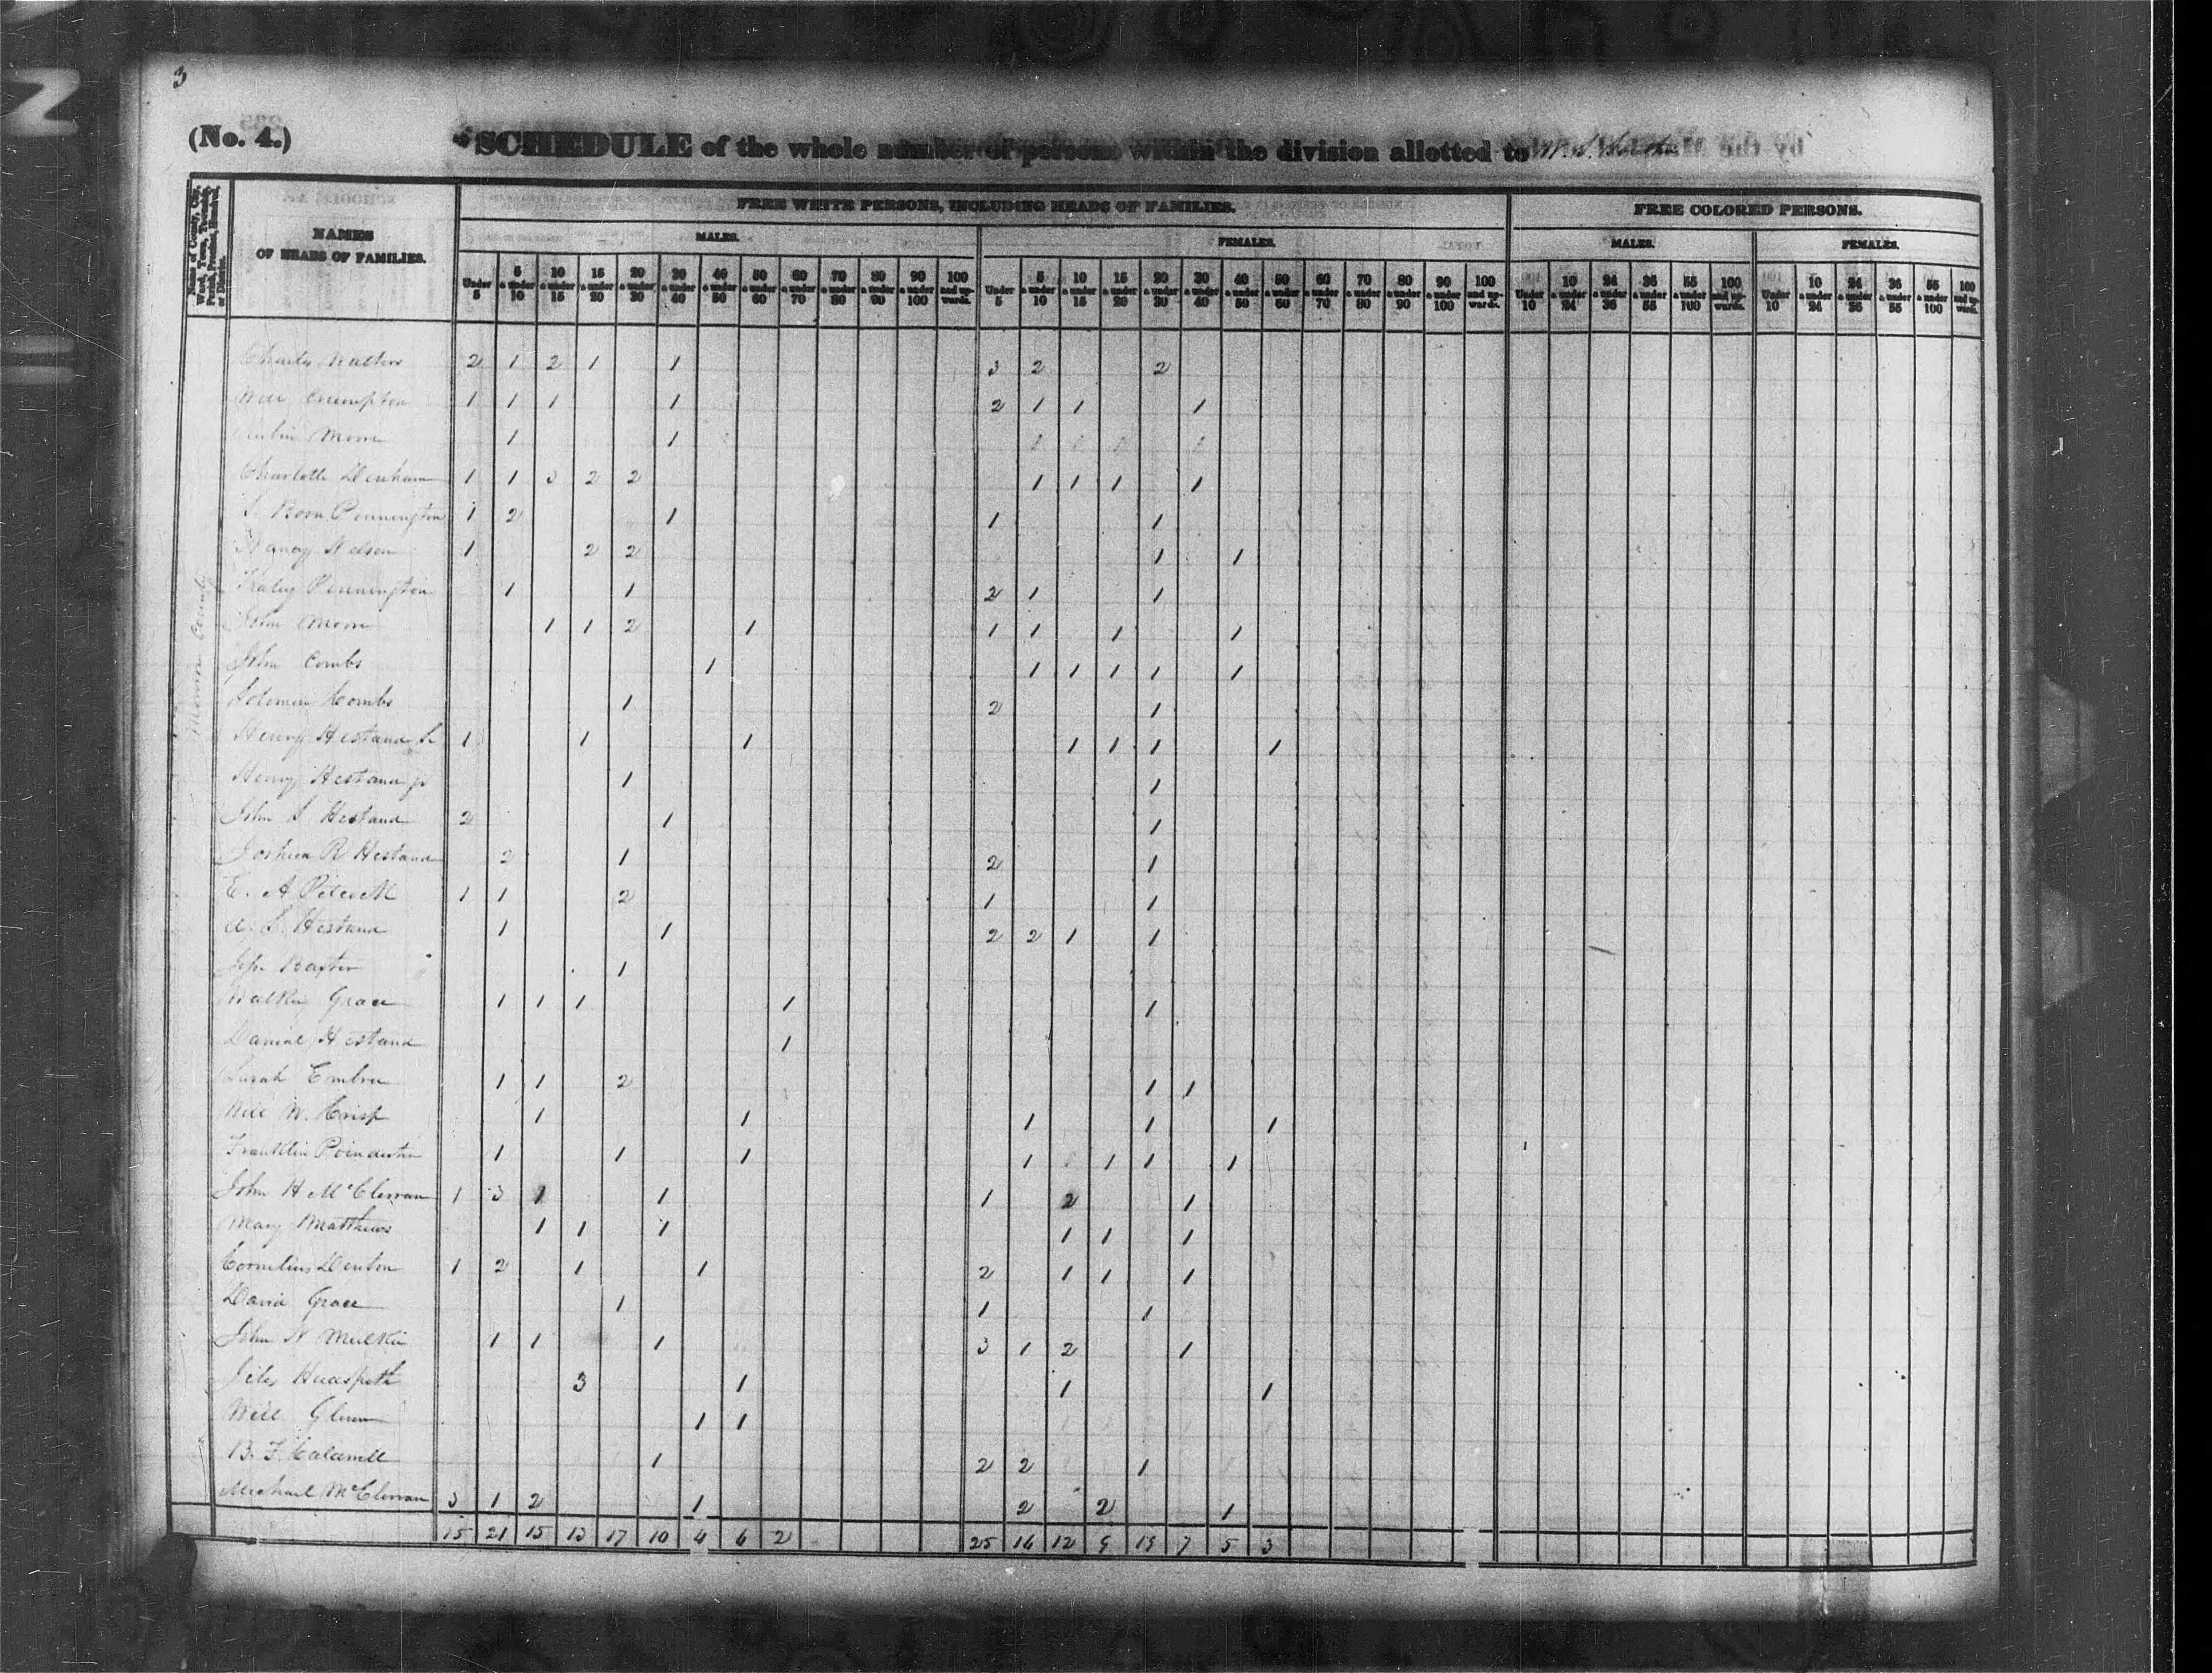 3
(No. 4.) SCHEDULE of the whole number of persons within the division allotted to
Name of County, City, Ward, Town, Township, Parish, Precinct, Hundred, or District.
NAMES OF HEADS OF FAMILIES.
FREE WHITE PERSONS, INCLUDING HEADS OF FAMILIES.
FREE COLORED PERSONS.
MALES. FEMALES. MALES. FEMALES.
Under 5 | 5 & under 10 | 10 & under 15 | 15 & under 20 | 20 & under 30 | 30 & under 40 | 40 & under 50 | 50 & under 60 | 60 & under 70 | 70 & under 80 | 80 & under 90 | 90 & under 100 | 100 and upwards. | Under 5 | 5 & under 10 | 10 & under 15 | 15 & under 20 | 20 & under 30 | 30 & under 40 | 40 & under 50 | 50 & under 60 | 60 & under 70 | 70 & under 80 | 80 & under 90 | 90 & under 100 | 100 and upwards. | Under 10 | 10 & under 24 | 24 & under 36 | 36 & under 55 | 55 & under 100 | 100 and upwards. | Under 10 | 10 & under 24 | 24 & under 36 | 36 & under 55 | 55 & under 100 | 100 and upwards.
Monroe County
Charles Walters 2 1 2 1 1 3 2 2
Will Crumpton 1 1 1 1 2 1 1 1
Moore 1 1 1 1 1 1
Charlotte Denham 1 1 3 2 2 1 1 1 1
Boon Pennington 1 2 1 1 1
Nancy Nelson 1 2 2 1 1
Pennington 1 1 2 1 1
John Moore 1 1 2 1 1 1 1 1
John Combs 1 1 1 1 1 1
Solomon Combs 1 2 1
Henry Hestand Sr 1 1 1 1 1 1 1
Henry Hestand jr 1 1
John S. Hestand 2 1 1
Joshua R Hestand 2 1 2 1
E. A 1 1 2 1 1
A. S. Hestand 1 1 2 2 1 1
1
Grace 1 1 1 1 1
Daniel Hestand 1
Sarah Embree 1 1 2 1 1
Will W. Crisp 1 1 1 1 1
Franklin Poindexter 1 1 1 1 1 1 1
John H McClerran 1 3 1 1 1 2 1
Mary Matthews 1 1 1 1 1 1
Cornelius Denton 1 2 1 1 2 1 1 1
David Grace 1 1 1
John N Mulkin 1 1 1 3 1 2 1
Giles Hudspeth 3 1 1 1
Will Glenn 1 1
B. F. Caldwell 1 2 2 1
Michael McClerran 3 1 2 1 2 2 1
15 21 15 13 17 10 4 6 2 25 16 12 9 19 7 5 3